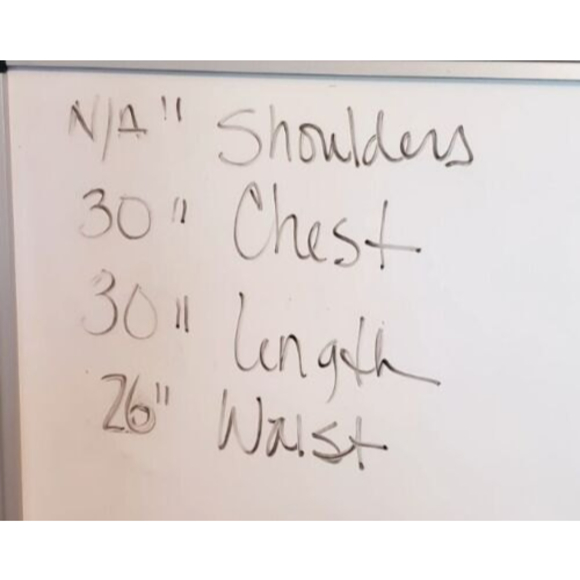 N/A" Shoulders
30" Chest
30" Length
26" Waist